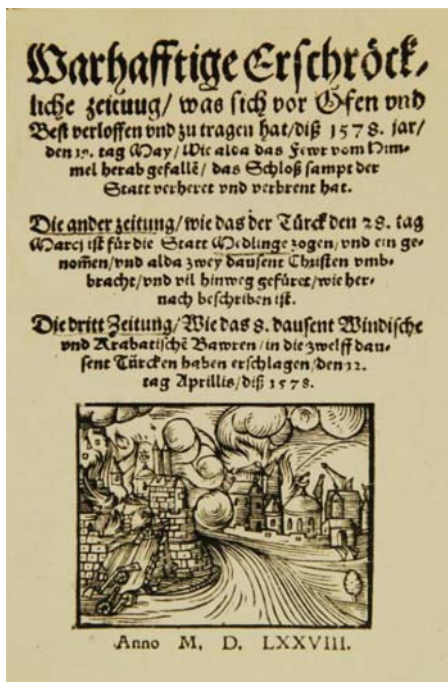 Warhafftige Erschröck/
liche zeituug/ was sich vor Ofen vnd
Best verloffen vnd zu tragen hat/diß 1578. jar/
den 19. tag May/ Wie alda das Fewr vom Him-
mel herab gefallē/ das Schloß sampt der
Statt verheret vnd verbrent hat.
Die ander zeitung/ wie das der Türck den 28. tag
Marcj ist für die Statt Medlinge zogen/vnd ein ge-
nom̄en/vnd alda zwey dausent Christen vmb-
bracht/vnd vil hinweg gefüret/wie her-
nach beschriben ist.
Die dritt Zeitung/ Wie das 8. dausent Windische
vnd Krabatischē Bawren/in die zwelff dau-
sent Türcken haben erschlagen/den 12.
tag Aprillis/diß 1578.
Anno M. D. LXXVIII.